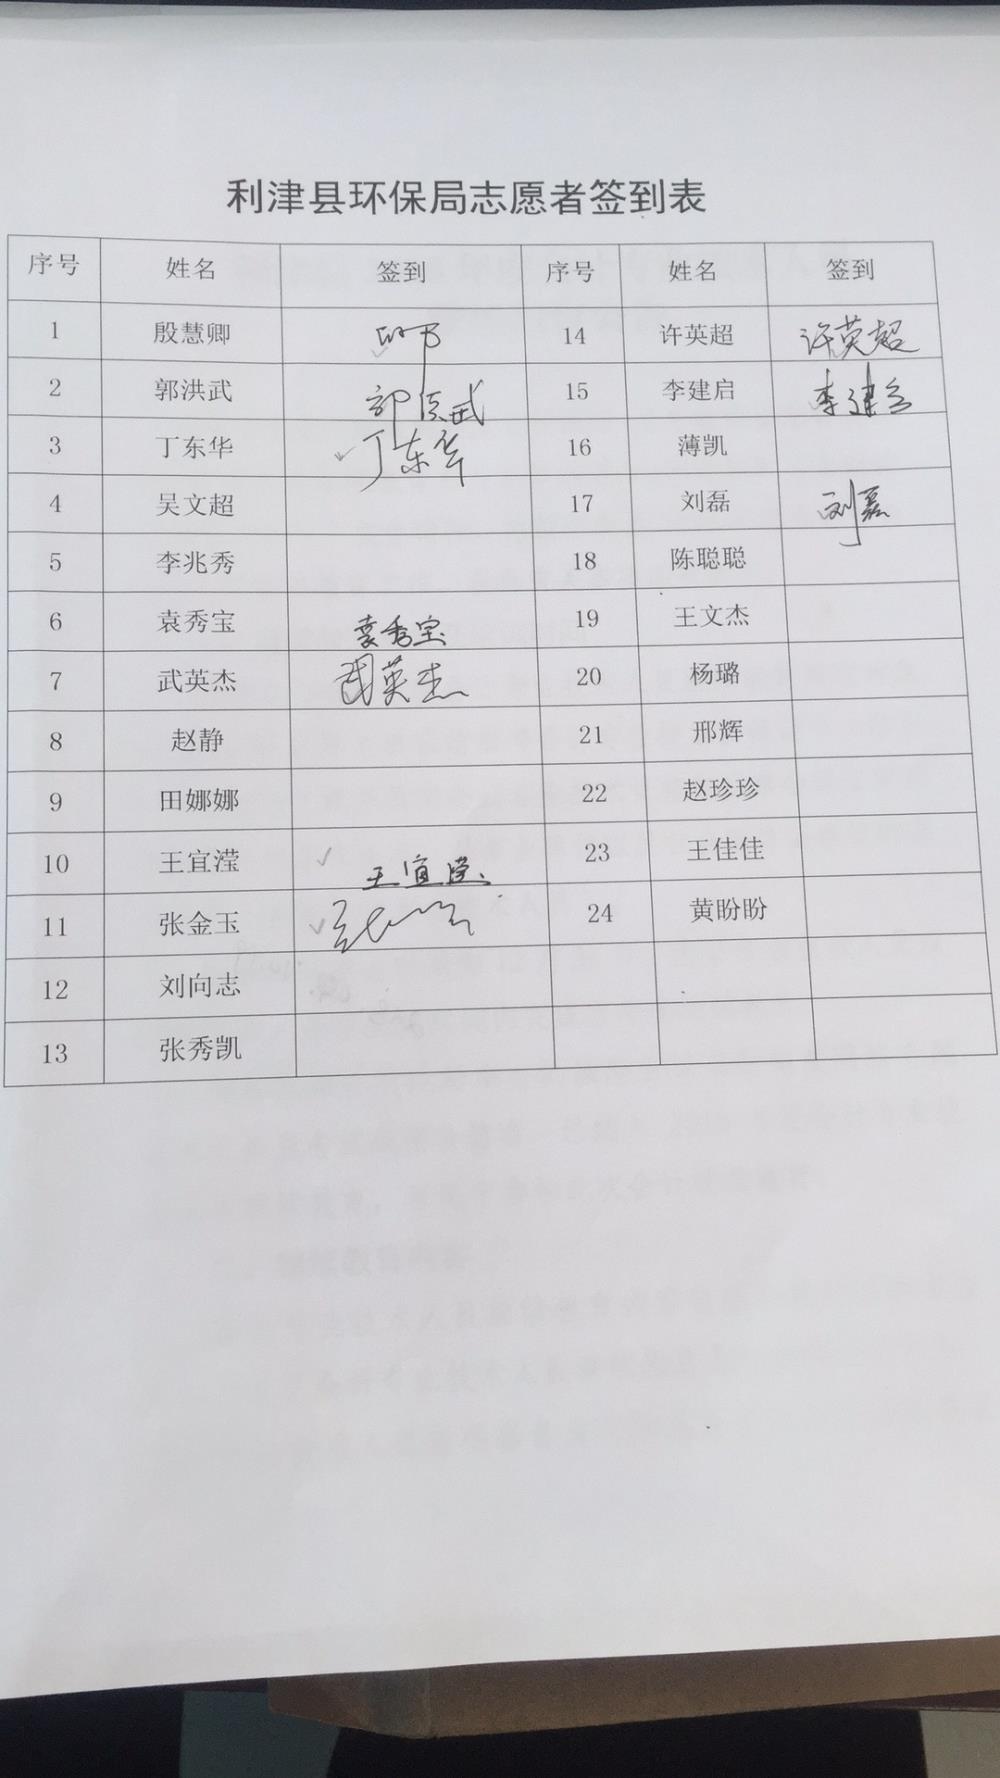 利津县环保局志愿者签到表
序号 姓名 签到 序号 姓名 签到
1 殷慧卿 14 许英超 许英超
2 郭洪武 郭洪武 15 李建启 李建启
3 丁东华 丁东华 16 薄凯
4 吴文超 17 刘磊 刘磊
5 李兆秀 18 陈聪聪
6 袁秀宝 袁秀宝 19 王文杰
7 武英杰 武英杰 20 杨璐
8 赵静 21 邢辉
9 田娜娜 22 赵珍珍
10 王宜滢 王宜滢 23 王佳佳
11 张金玉 24 黄盼盼
12 刘向志
13 张秀凯